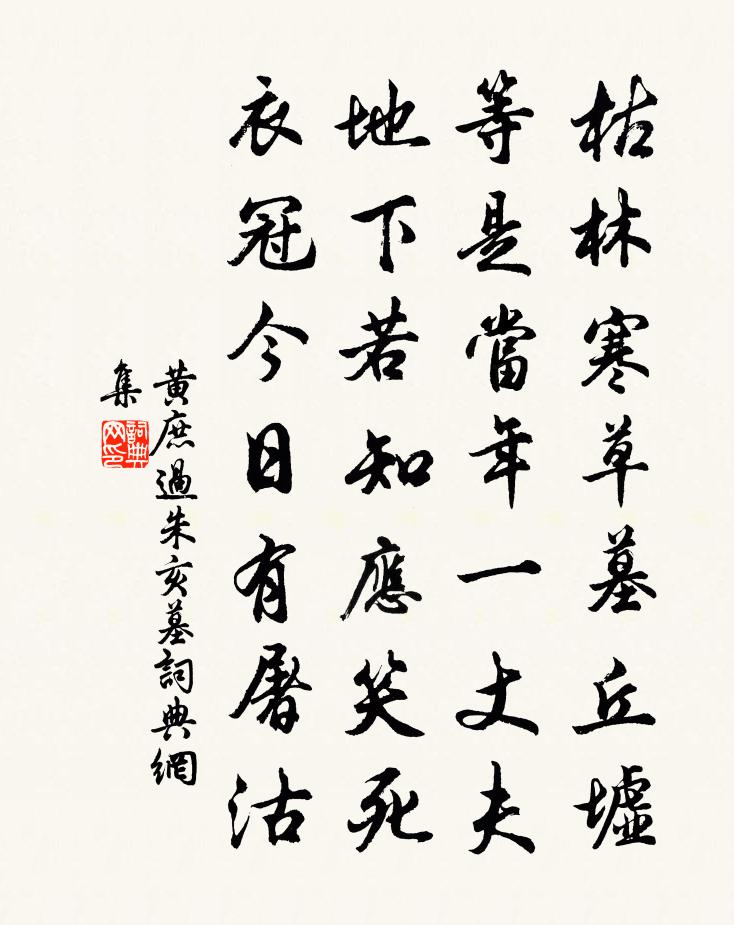 枯林寒草墓丘墟
等是當年一丈夫
地下若知應笑死
衣冠今日有屠沽
黄庶過朱亥墓詞典網
集
詞典网印